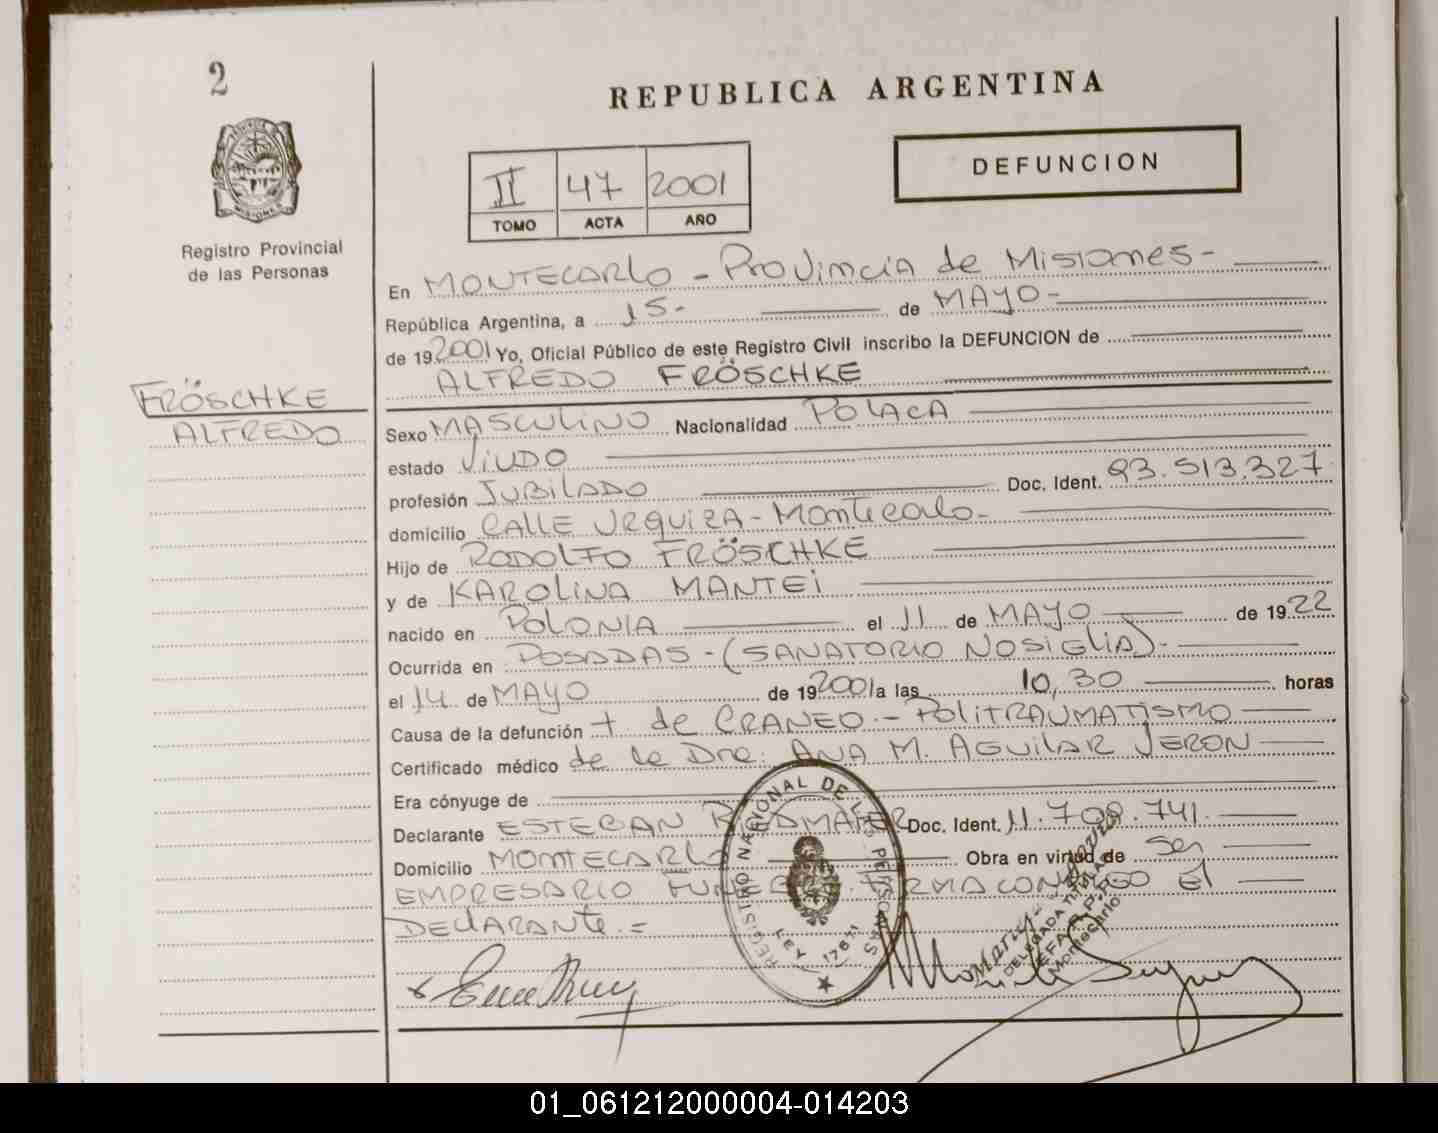 2
REPUBLICA ARGENTINA
DEFUNCION
II 47 2001
TOMO ACTA AÑO
Registro Provincial
de las Personas
En MONTECARLO - Provincia de Misiones -
República Argentina, a 15- de MAYO-
de 192001 Yo, Oficial Público de este Registro Civil inscribo la DEFUNCION de
ALFREDO FRÖSCHKE
FRÖSCHKE
ALFREDO
Sexo MASCULINO Nacionalidad POLACA
estado VIUDO
profesión JUBILADO Doc. Ident. 93.513.327
domicilio CALLE URQUIZA - Montecarlo-
Hijo de RODOLFO FRÖSCHKE
y de KAROLINA MANTEI
nacido en POLONIA el 11 de MAYO de 1922
Ocurrida en POSADAS - (SANATORIO NOSIGLIA)-
el 14 de MAYO de 192001 a las 10,30 horas
Causa de la defunción + de CRANEO.- POLITRAUMATISMO
Certificado médico de la Dra: ANA M. AGUILAR JERON
Era cónyuge de
Declarante ESTEBAN RIEDMAIER Doc. Ident. 11.708.741.
Domicilio MONTECARLO Obra en virtud de Ser
EMPRESARIO FUNEBRE. FIRMA CONMIGO El
DEClARANTE.=
REGISTRO NACIONAL DE LAS PERSONAS
LEY 17671
DELEGADA TITULAR
Montecarlo
01_061212000004-014203